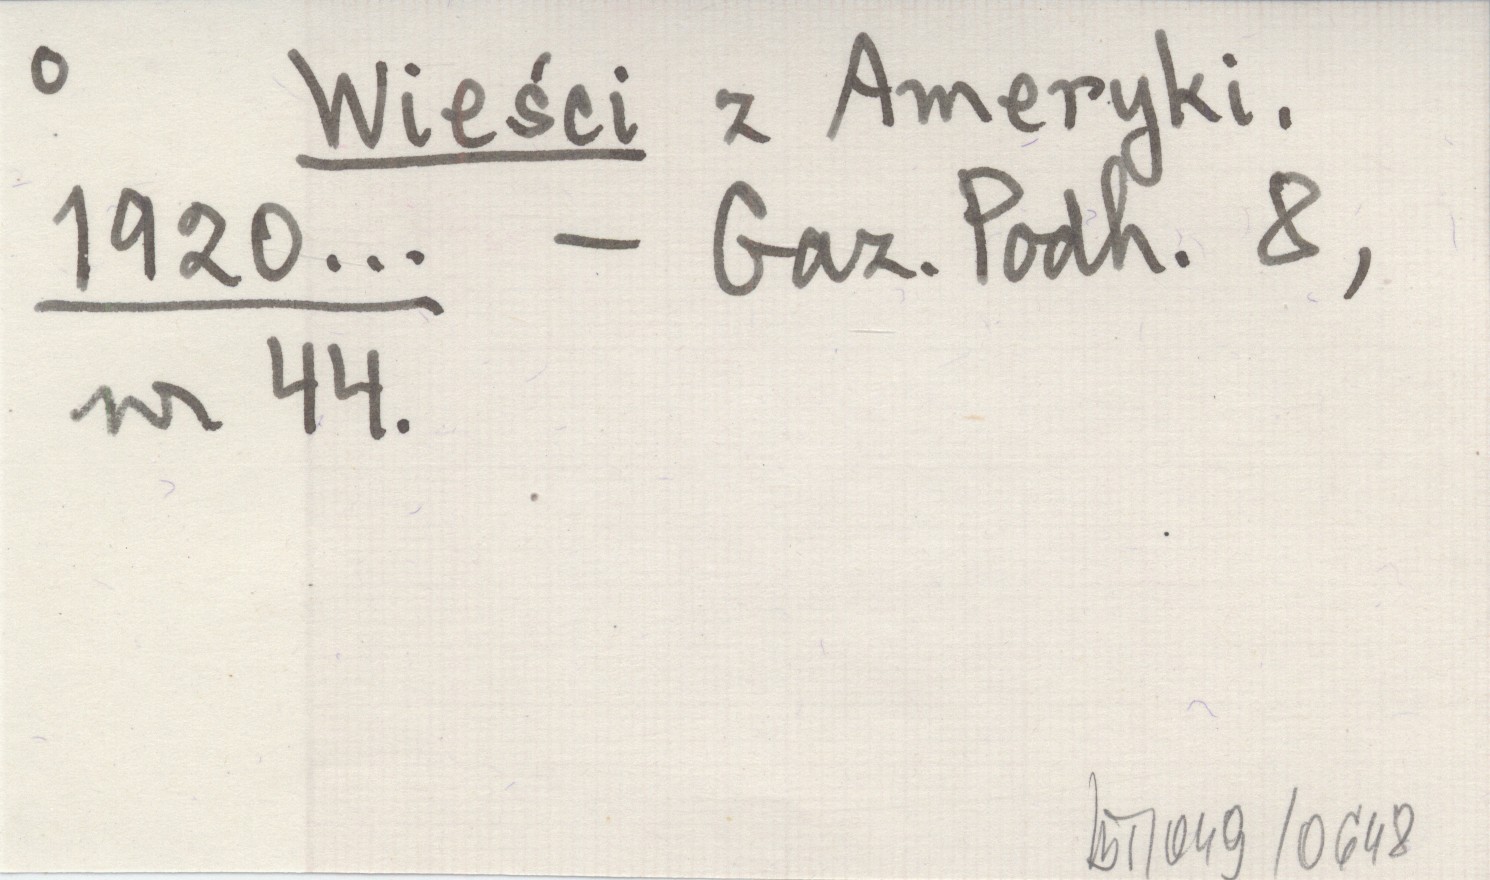 o Wieści z Ameryki.
1920... – Gaz. Podh. 8,
nr 44.
/049/0648